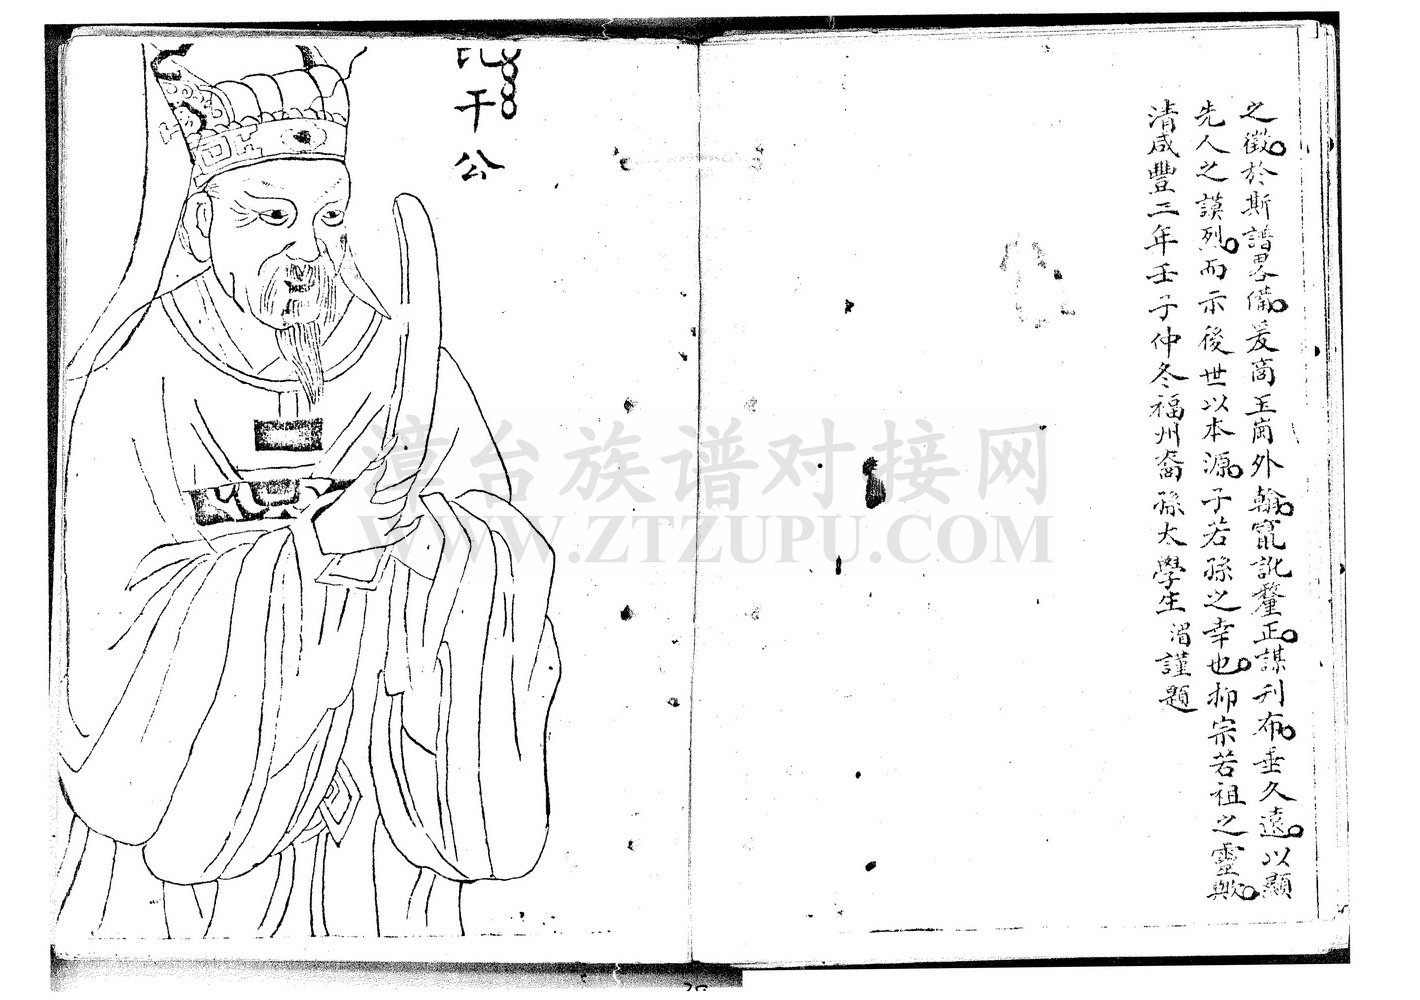 之徵於斯譜畧備爰商王崗外翰竄訛釐正謀刋布垂久遠以顯
先人之謨列而示後世以本源子若孫之幸也抑宗若祖之靈歟
清咸豐二年壬子仲冬福州裔孫太學生湄謹題
比干公
漳台族谱对接网
WWW.ZTZUPU.COM